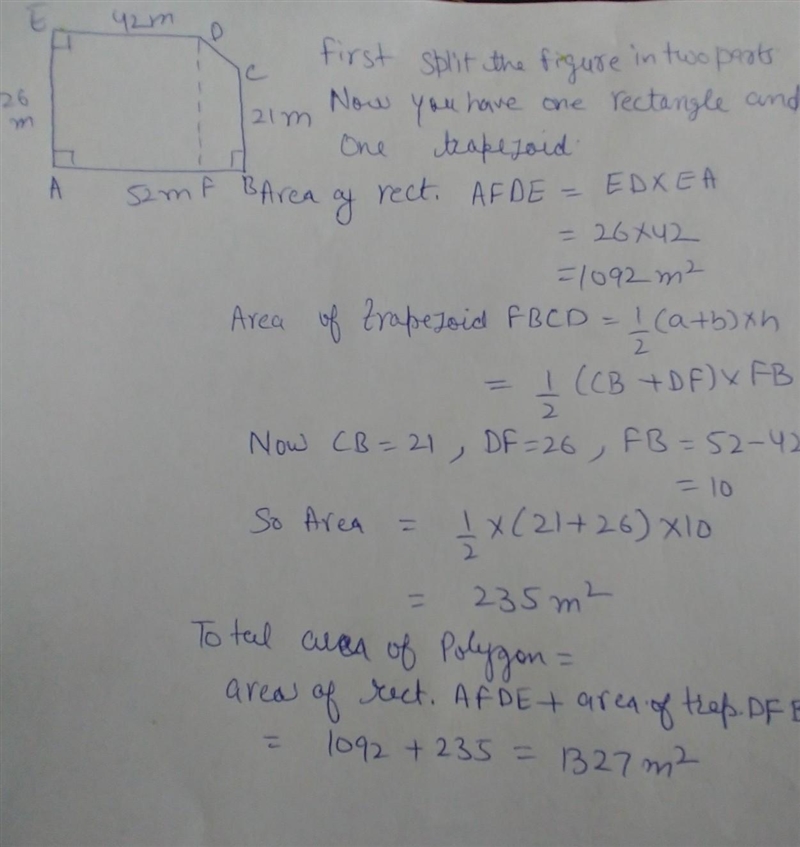 E 42m D
First split the figure in two parts
C
26 m
21m
Now you have one rectangle and
one trapezoid.
A 52m F B
Area of rect. AFDE = ED×EA
= 26×42
=1092 m²
Area of trapezoid FBCD = 1/2 (a+b)×h
= 1/2 (CB +DF)× FB
Now CB=21, DF=26, FB = 52-42
= 10
So Area = 1/2 ×(21+26)×10
= 235 m²
Total area of Polygon =
area of rect. AFDE + area of trap. DF
= 1092 + 235 = 1327 m²